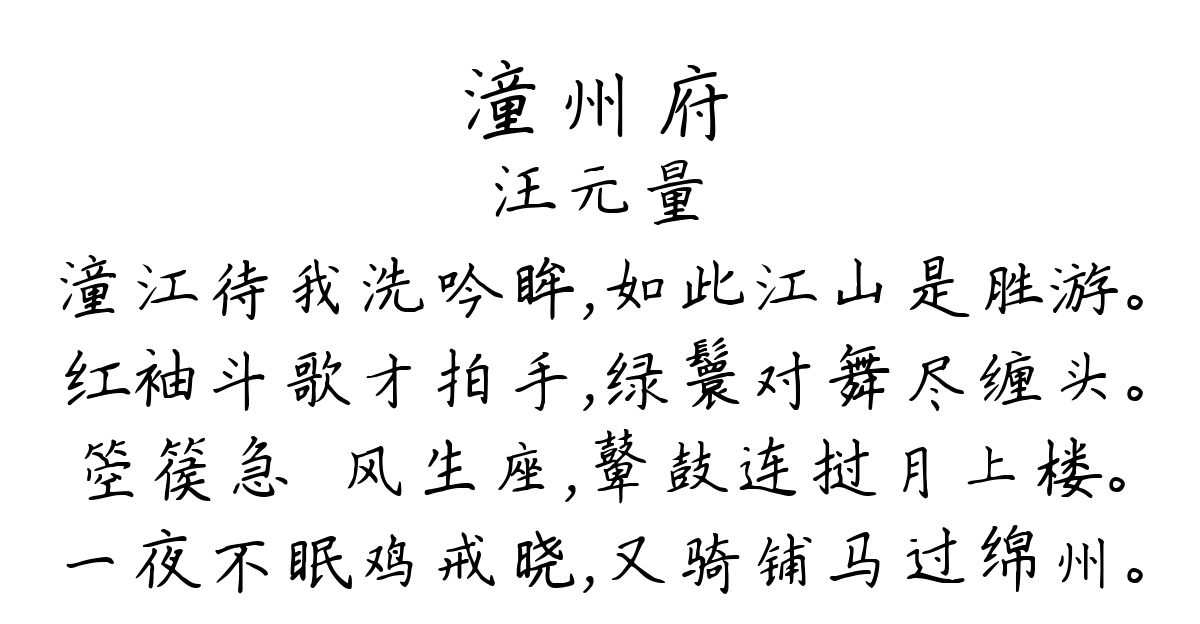 潼州府
汪元量
潼江待我洗吟眸,如此江山是胜游。
红袖斗歌才拍手,绿鬟对舞尽缠头。
箜篌急 风生座,鼙鼓连挝月上楼。
一夜不眠鸡戒晓,又骑铺马过绵州。